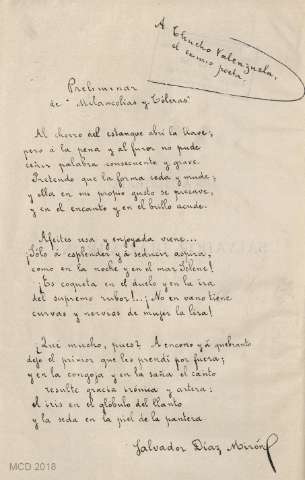 A Chucho Valenzuela,
el eximio poeta.
Preliminar
de "Melancolías y Cóleras"
Al chorro del estanque abrí la llave;
pero á la pena y al furor no pude
ceñir palabra consecuente y grave.
Pretendo que la forma ceda y mude;
y ella en mi propio gusto se precave,
y en el encanto y en el brillo acude.
Afeites usa y enjoyada viene...
¡Sólo á esplender y á seducir aspira,
como en la noche y en el mar Selene!
¡Es coqueta en el duelo y en la ira
del supremo rubor!...¡No en vano tiene
curvas y nervios de mujer la lira!
¿Qué mucho, pues? A encono y á quebranto
dejo el primor que les prendí por fuera;
y en la congoja y en la saña el canto
resulte gracia irónica y artera:
el iris en el glóbulo del llanto
y la seda en la piel de la pantera
Salvador Díaz Mirón
MCD 2018